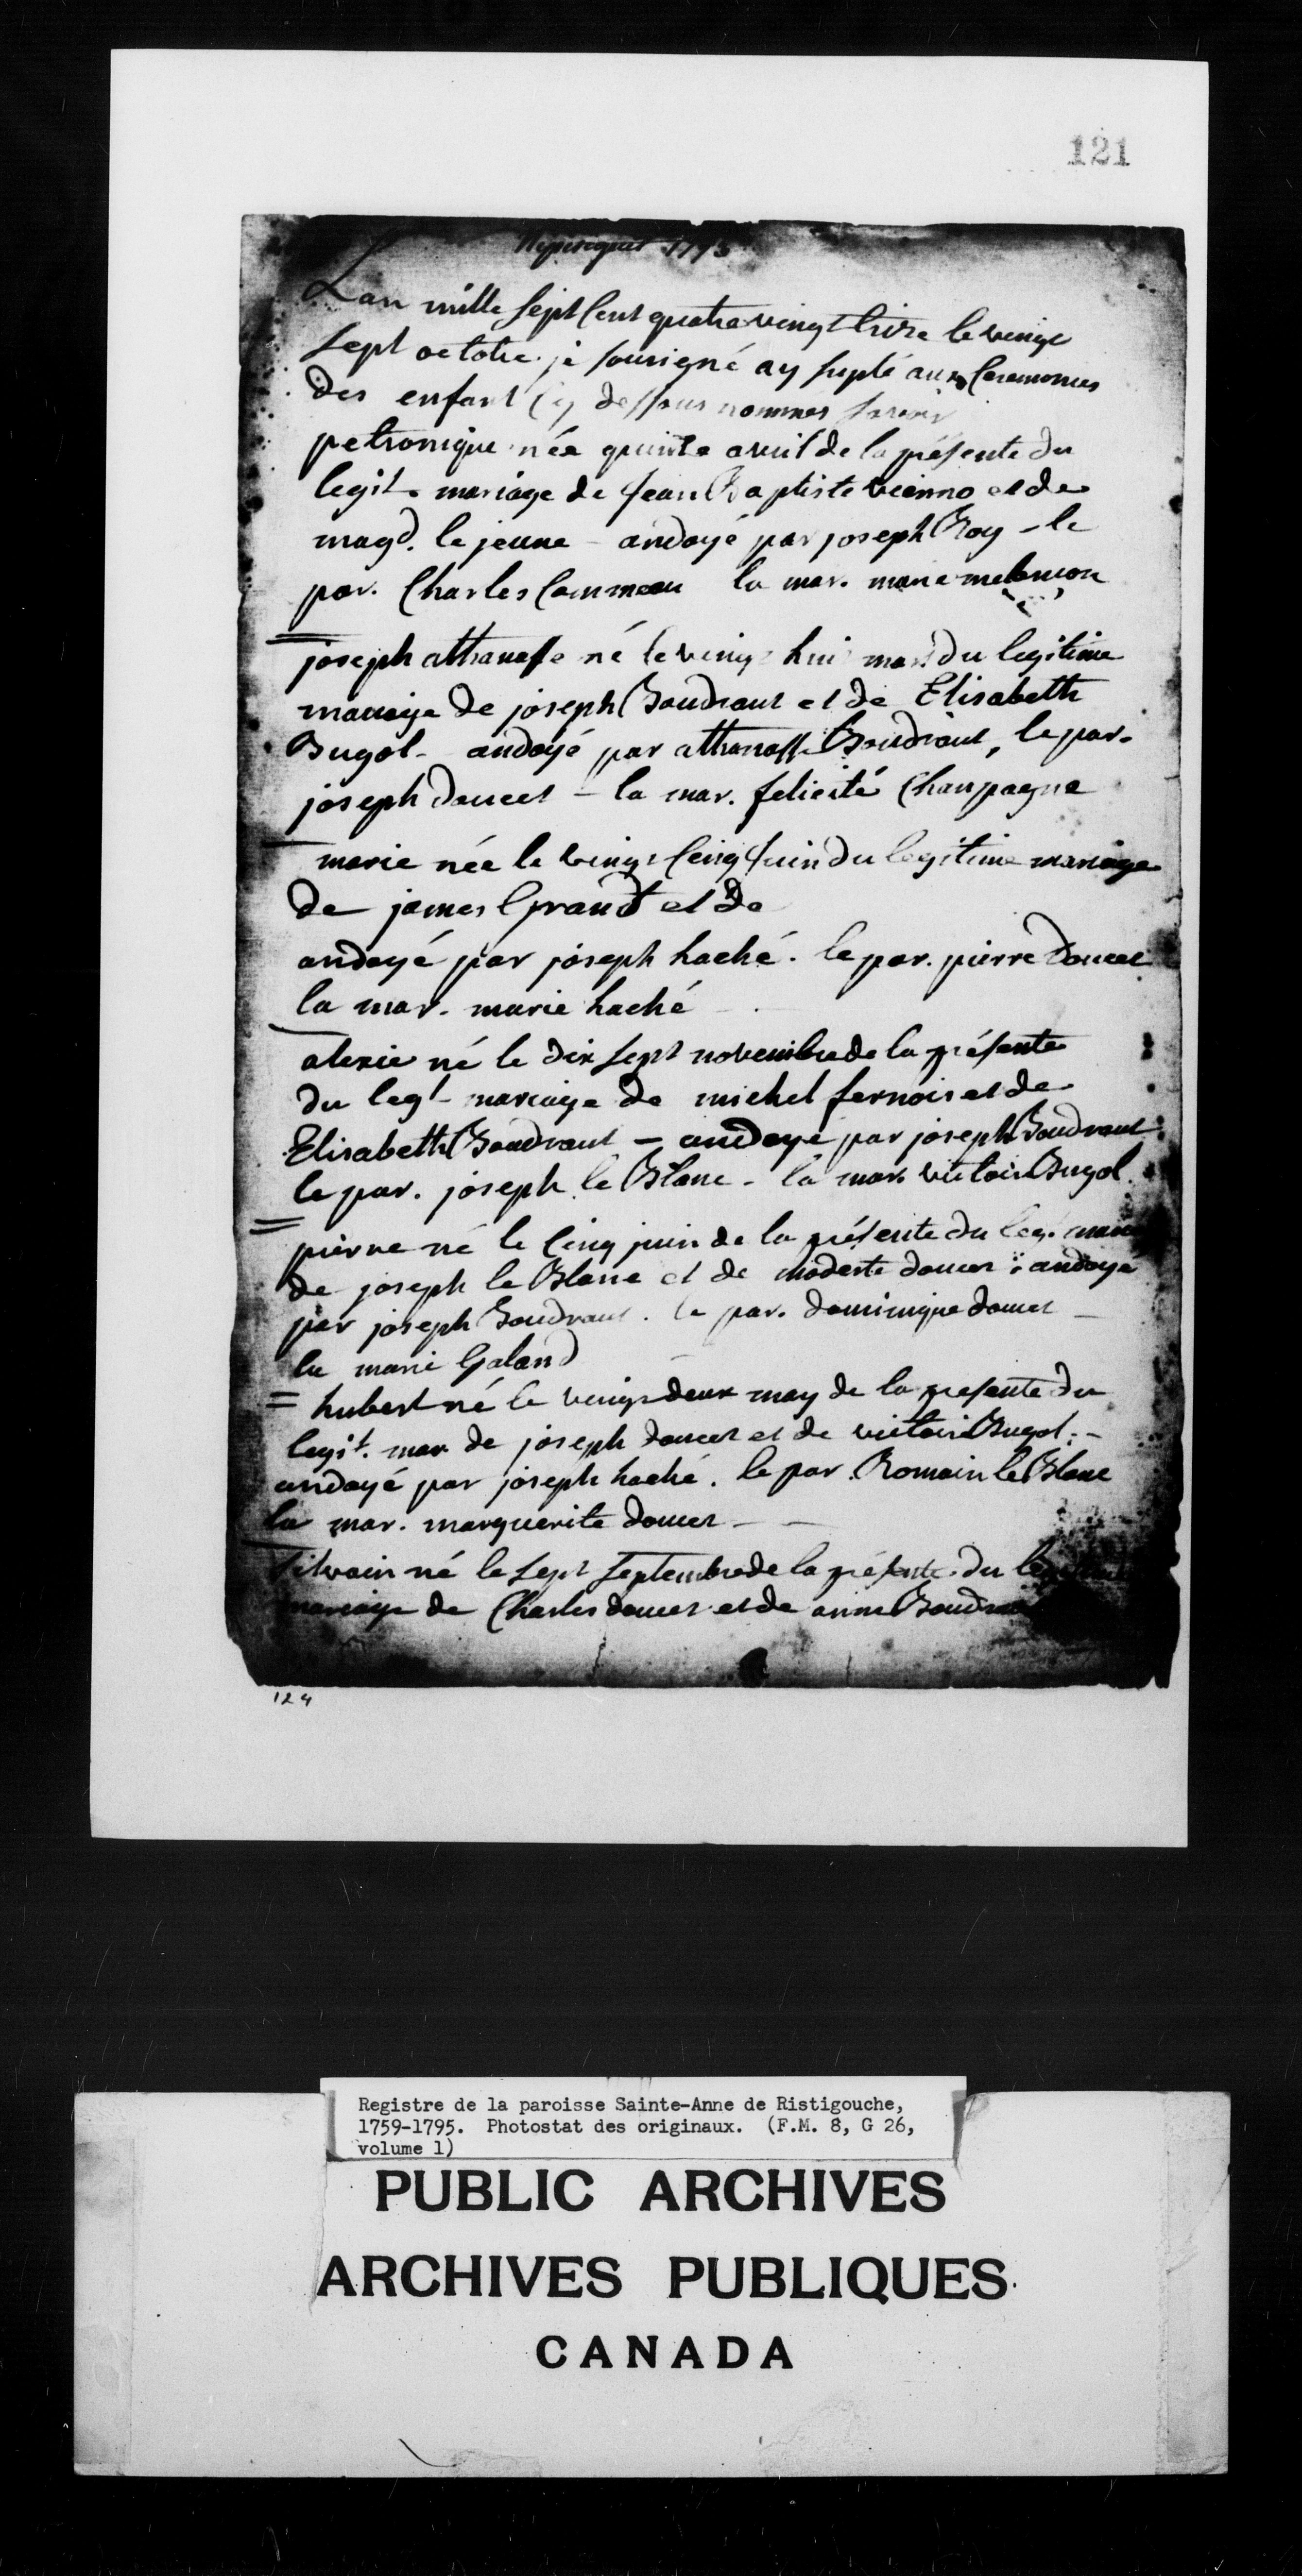 121
Nepisiguit 1793
Lan mille sept Cent quatre vingt treize le vingt
sept octobre je sousigné ay suplé aux Ceremonies
des enfant Cy dessous nommes savoir
petronique née quinze avril de la présente du
legit. mariage de Jean Baptiste vienno et de
magd. le jeune - andoyé par joseph Roy - le
par. Charles Commeau la mar. marie melançon
joseph athanasse né le vingt hui mars du legitime
mariage de joseph Boudraut et de Elisabeth
Bugol - andoyé par athanasse Boudraut, le par.
joseph doucet - la mar. felicité Champagne
marie née le vingt Cinq Juin du legitime mariage
de james Grand et de
andoyé par joseph haché. le par. pierre doucet
la mar. marie haché
alexie né le dix sept novembre de la présente
du legt. mariage de michel fernois et de
Elisabeth Boudraut - andoyé par joseph Boudraut
le par. joseph le Blanc - la mar. victoir Bugol.
pierre né le Cinq juin de la présente du leg. mari
de joseph le Blanc et de modeste doucet : andoyé
par joseph Boudraut. le par. dominique doucet -
la marie Galand
= hubert né le vingt deux may de la presente du
legit. mar de joseph doucet et de victoir Bugol. -
andoyé par joseph haché. le par. Romain le Blanc
la mar. marguerite doucet - -
Silvain né le sept septembre de la présente du
mariage de Charles doucet et de anne
124
Registre de la paroisse Sainte-Anne de Ristigouche,
1759-1795. Photostat des originaux. (F.M. 8, G 26,
volume 1)
PUBLIC ARCHIVES
ARCHIVES PUBLIQUES
CANADA